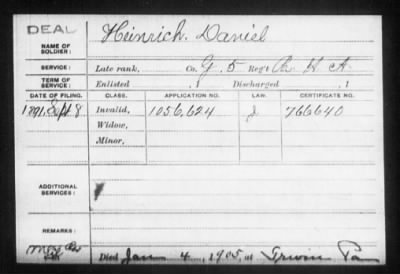 DEAL
Heinrich. Daniel
NAME OF
SOLDIER:
SERVICE: Late rank, Co. G. 5 Reg't Pa. H. A.
TERM OF
SERVICE: Enlisted , 1 Discharged , 1
DATE OF FILING. CLASS. APPLICATION NO. LAW. CERTIFICATE NO.
1891, Sept 8 Invalid, 1056,624 J 766640
Widow,
Minor,
ADDITIONAL
SERVICES:
REMARKS:
Died Jan 4, 1905, at Irwin Pa